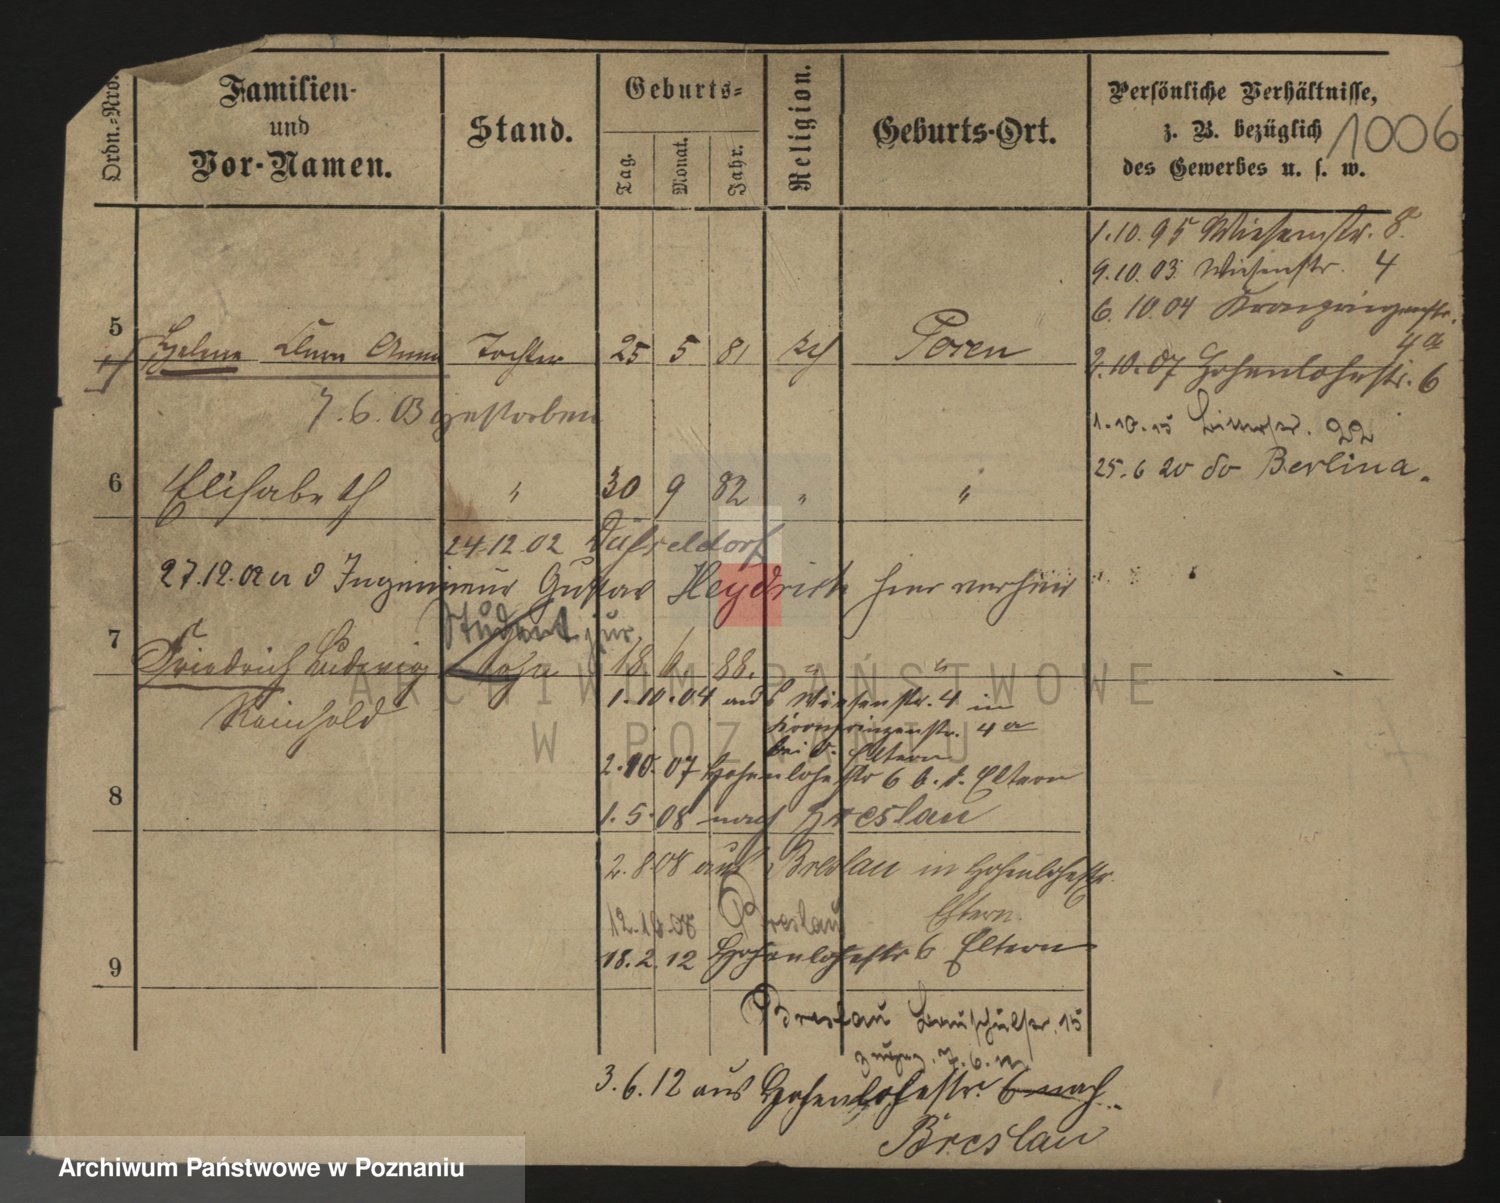 Ordn.-Nro.
Familien-
und
Vor-Namen.
Stand.
Geburts-
Tag.
Monat.
Jahr.
Religion.
Geburts-Ort.
Persönliche Verhältnisse,
z. B. bezüglich
des Gewerbes u. s. w.
1006
1.10.95 Wiesenstr. 8.
9.10.03 Wiesenstr. 4
6.10.04 Kronprinzenstr.
4a
2.10.07 Hohenlohestr. 6
5 Clara Anna Tochter 25 5 81 Posen
7.6.03 gestorben
25.6 20 do Berlina.
6 Elisabeth " 30 9 82 " "
24.12.02 Düsseldorf
27.12.02 Ingenieur Gustav Heydrich hier verheir
Student jur.
7 Friedrich Ludwig 18 6 88. " "
Reinhold
1.10.04 aus Wiesenstr. 4 in
Kronprinzenstr. 4a
bei d. Eltern
2.10.07 Hohenlohestr 6 b. d. Eltern
8
1.5.08 nach Breslau
2.8.08 aus Breslau in Hohenlohestr.
Eltern.
Breslau
9
18.2.12 Hohenlohestr 6 Eltern
Breslau 15
3.6.12 aus Hohenlohestr. 6 nach
Breslau
ARCHIWUM PAŃSTWOWE
W POZNANIU
Archiwum Państwowe w Poznaniu